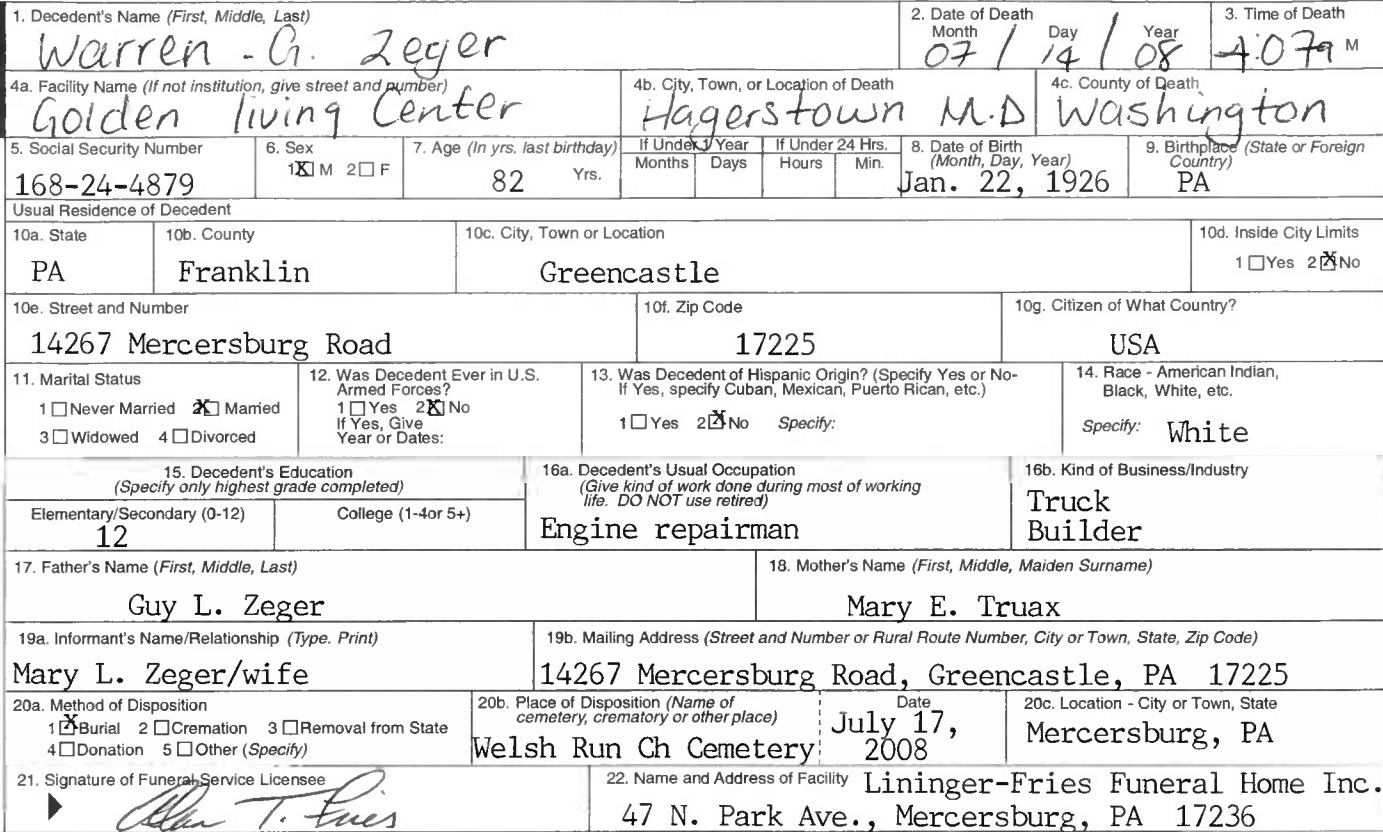 1. Decedent's Name (First, Middle, Last)
Warren - G. Zeger
2. Date of Death
Month Day Year
07 / 14 / 08
3. Time of Death
M
4a. Facility Name (If not institution, give street and number)
Golden living Center
4b. City, Town, or Location of Death
Hagerstown M.D
4c. County of Death
Washington
5. Social Security Number
168-24-4879
6. Sex
1 X M 2 ☐ F
7. Age (In yrs. last birthday)
82 Yrs.
If Under 1 Year
Months Days
If Under 24 Hrs.
Hours Min.
8. Date of Birth
(Month, Day, Year)
Jan. 22, 1926
9. Birthplace (State or Foreign
Country)
PA
Usual Residence of Decedent
10a. State
PA
10b. County
Franklin
10c. City, Town or Location
Greencastle
10d. Inside City Limits
1 ☐ Yes 2 X No
10e. Street and Number
14267 Mercersburg Road
10f. Zip Code
17225
10g. Citizen of What Country?
USA
11. Marital Status
1 ☐ Never Married 2 X Married
3 ☐ Widowed 4 ☐ Divorced
12. Was Decedent Ever in U.S.
Armed Forces?
1 ☐ Yes 2 X No
If Yes, Give
Year or Dates:
13. Was Decedent of Hispanic Origin? (Specify Yes or No-
If Yes, specify Cuban, Mexican, Puerto Rican, etc.)
1 ☐ Yes 2 X No Specify:
14. Race - American Indian,
Black, White, etc.
Specify: White
15. Decedent's Education
(Specify only highest grade completed)
Elementary/Secondary (0-12)
12
College (1-4or 5+)
16a. Decedent's Usual Occupation
(Give kind of work done during most of working
life. DO NOT use retired)
Engine repairman
16b. Kind of Business/Industry
Truck
Builder
17. Father's Name (First, Middle, Last)
Guy L. Zeger
18. Mother's Name (First, Middle, Maiden Surname)
Mary E. Truax
19a. Informant's Name/Relationship (Type. Print)
Mary L. Zeger/wife
19b. Mailing Address (Street and Number or Rural Route Number, City or Town, State, Zip Code)
14267 Mercersburg Road, Greencastle, PA 17225
20a. Method of Disposition
1 X Burial 2 ☐ Cremation 3 ☐ Removal from State
4 ☐ Donation 5 ☐ Other (Specify)
20b. Place of Disposition (Name of
cemetery, crematory or other place)
Welsh Run Ch Cemetery
Date
July 17,
2008
20c. Location - City or Town, State
Mercersburg, PA
21. Signature of Funeral Service Licensee
Alan T. Fries
22. Name and Address of Facility Lininger-Fries Funeral Home Inc.
47 N. Park Ave., Mercersburg, PA 17236